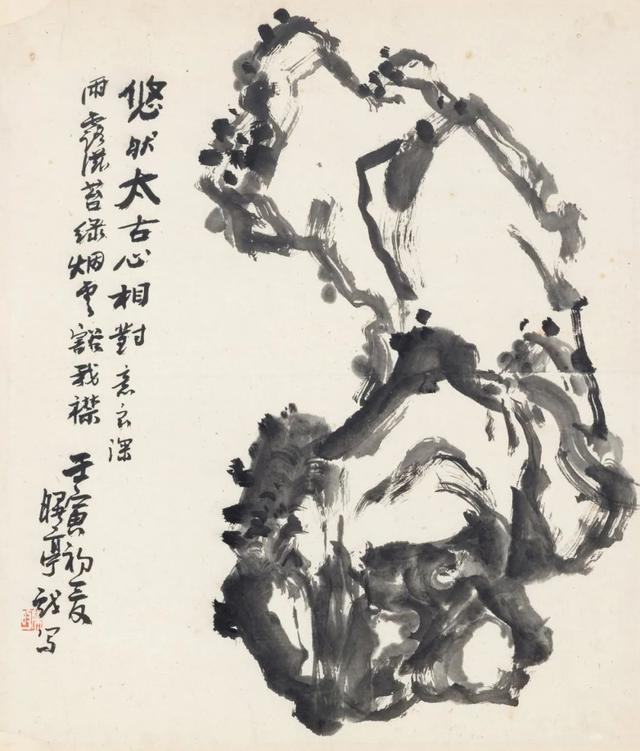 悠然太古心相對意良深
雨露滋苔綠烟雲豁我襟
壬寅初夏
亭戲寫